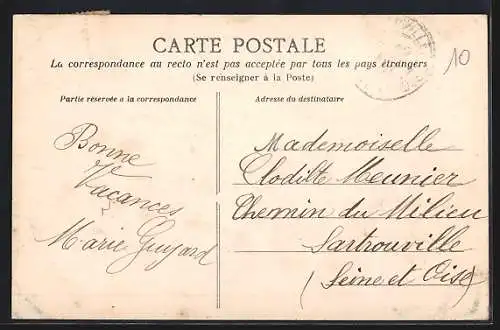 CARTE POSTALE
La correspondance au recto n'est pas acceptée par tous les pays étrangers
(Se renseigner à la Poste)
10
Partie réservée à la correspondance
Adresse du destinataire
Bonne
Vacances
Marie Guyard
Mademoiselle
Clodilte Meunier
Chemin du Milieu
Sartrouville
(Seine et Oise)